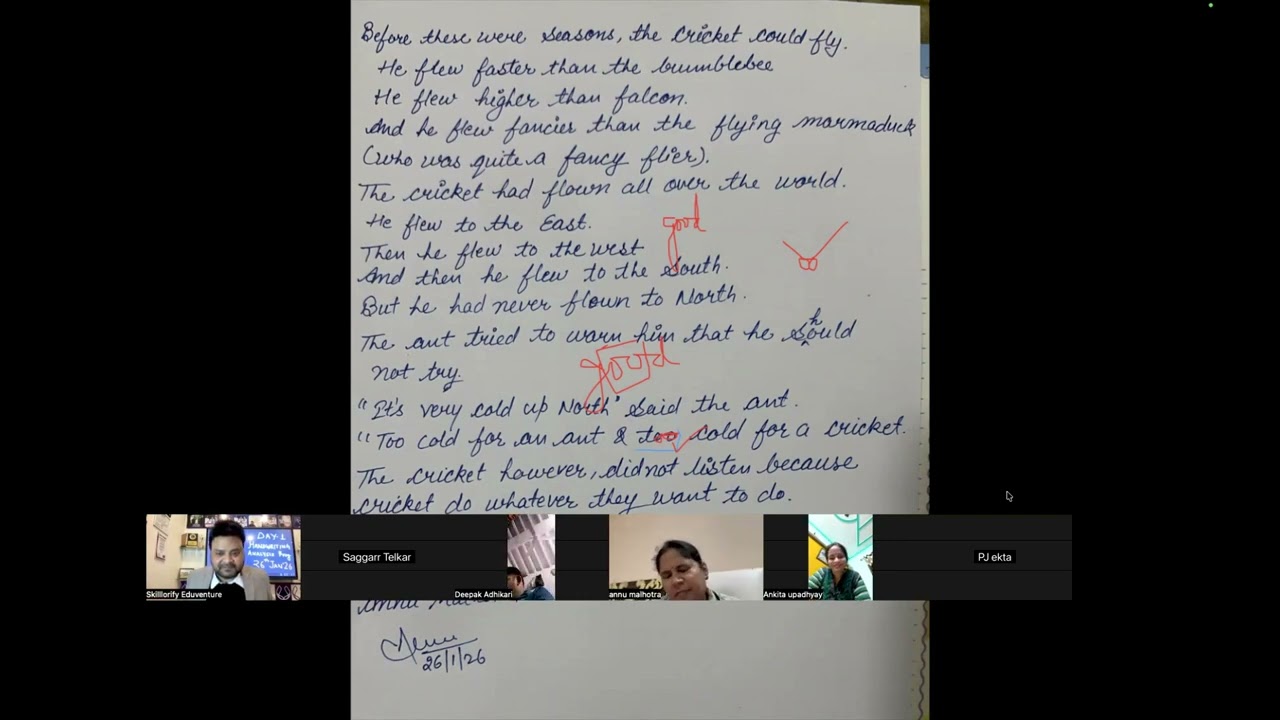 Before these were seasons, the cricket could fly.
He flew faster than the bumblebee
He flew higher than falcon.
And he flew fancier than the flying marmaduck
(who was quite a fancy flier).
The cricket had flown all over the world.
He flew to the East.
good
Then he flew to the west
And then he flew to the South.
But he had never flown to North.
The ant tried to warn him that he should
not try.
good
"It's very cold up North" said the ant.
"Too cold for an ant & too cold for a cricket.
The cricket however, did not listen because
cricket do whatever they want to do.
DAY-1
HANDWRITING
26th Jan 26
Skilllorify Eduventure
Saggarr Telkar
Deepak Adhikari
annu malhotra
Ankita upadhyay
PJ ekta
26/1/26